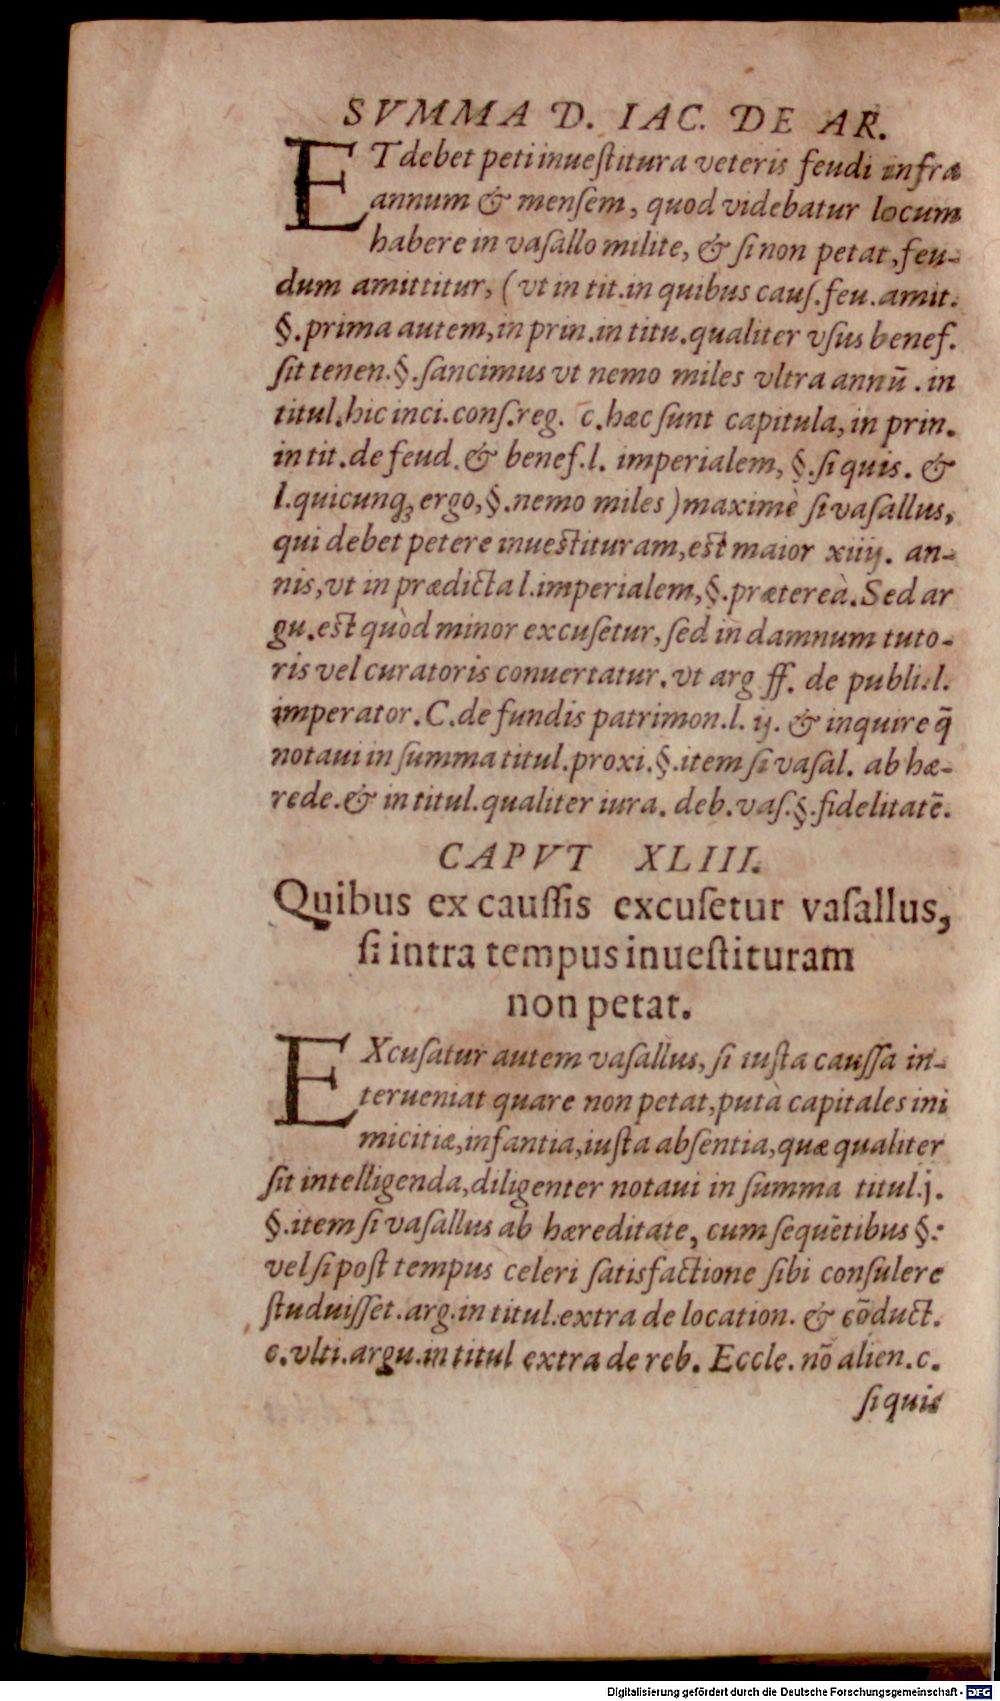 SVMMA D. IAC. DE AR.
ET debet peti inueſtitura veteris feudi infra
annum & menſem, quod videbatur locum
habere in vaſallo milite, & ſi non petat, feu-
dum amittitur, (vt in tit. in quibus cauſ. feu. amit.
§. prima autem, in prin. in titu. qualiter vſus benef.
ſit tenen. §. ſancimus vt nemo miles vltra annū. in
titul. hic inci. conſ. reg. c. hæc ſunt capitula, in prin.
in tit. de feud. & benef. l. imperialem, §. ſi quis. &
l. quicunq; ergo, §. nemo miles) maximè ſi vaſallus,
qui debet petere inueſtituram, eſt maior xiiij. an-
nis, vt in prædicta l. imperialem, §. prætereà. Sed ar
gu. eſt quòd minor excuſetur, ſed in damnum tuto-
ris vel curatoris conuertatur. vt arg ff. de publi. l.
imperator. C. de fundis patrimon. l. ij. & inquire q̄
notaui in ſumma titul. proxi. §. item ſi vaſal. ab hæ-
rede. & in titul. qualiter iura. deb. vaſ. §. fidelitatē.
CAPVT XLIII.
Quibus ex cauſſis excuſetur vaſallus,
ſi intra tempus inueſtituram
non petat.
EXcuſatur autem vaſallus, ſi iuſta cauſſa in-
terueniat quare non petat, putà capitales ini
micitiæ, infantia, iuſta abſentia, quæ qualiter
ſit intelligenda, diligenter notaui in ſumma titul. j.
§. item ſi vaſallus ab hæreditate, cum ſequētibus §:
vel ſi poſt tempus celeri ſatisfactione ſibi conſulere
ſtuduiſſet. arg. in titul. extra de location. & cōduct.
c. vlti. argu. in titul extra de reb. Eccle. nō alien. c.
ſi quis
Digitalisierung gefördert durch die Deutsche Forschungsgemeinschaft - DFG